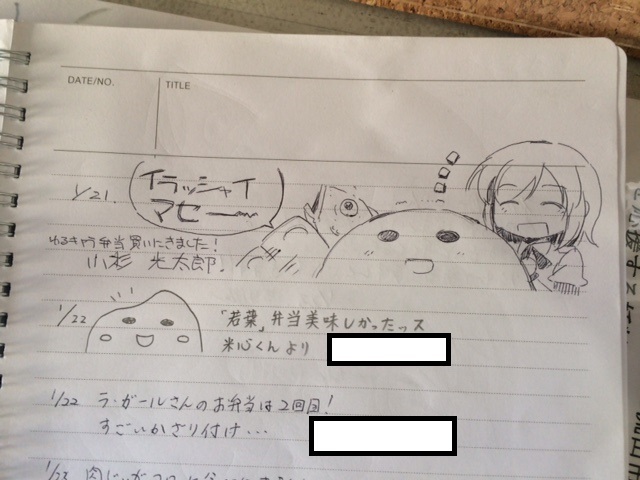 DATE/NO. TITLE
1/21.
イラッシャイ
マセー〜
ゆるキャラ弁当買いにきました!
小杉 光太郎.
1/22 「若葉」弁当美味しかったッス
米心くんより
1/22 ラ・ガールさんのお弁当は2回目!
すごいかざり付け・・・
1/23 肉じゃがコロッ